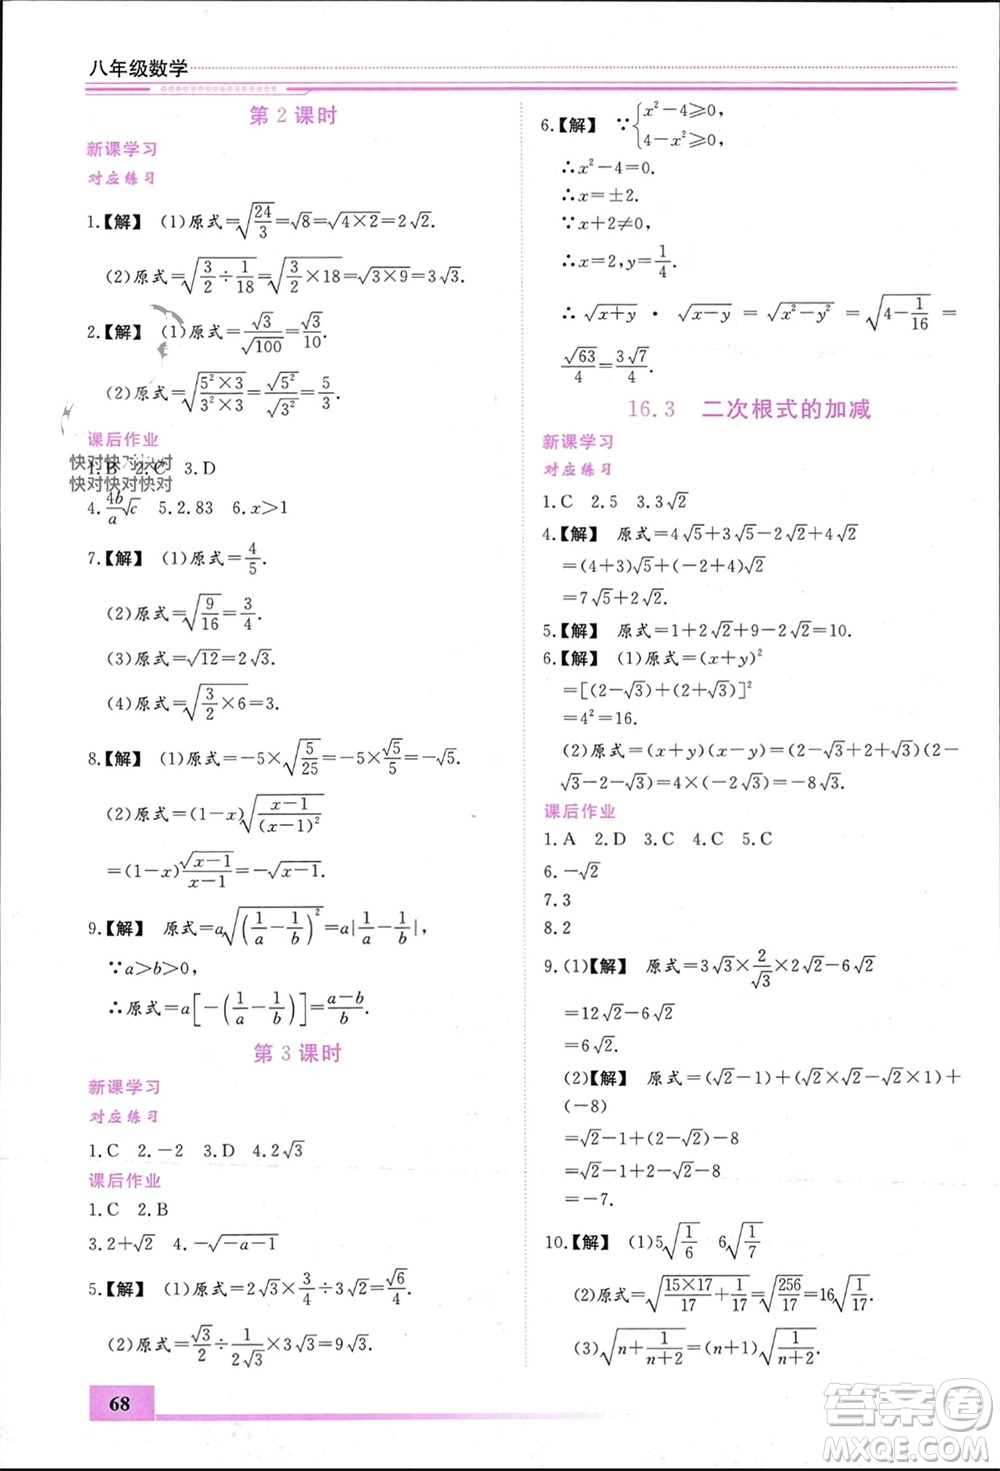 八年级数学
第2课时
新课学习
对应练习
1.【解】 (1)原式=√(24/3)=√8=√(4×2)=2√2.
(2)原式=√(3/2÷1/18)=√(3/2×18)=√(3×9)=3√3.
2.【解】 (1)原式=√3/√100=√3/10.
(2)原式=√((5²×3)/(3²×3))=√5²/√3²=5/3.
课后作业
1.B 2.C 3.D
快对快对快对快对
快对快对快对快对
4.(4b/a)√c 5.2.83 6.x>1
7.【解】 (1)原式=4/5.
(2)原式=√(9/16)=3/4.
(3)原式=√12=2√3.
(4)原式=√(3/2×6)=3.
8.【解】 (1)原式=-5×√(5/25)=-5×√5/5=-√5.
(2)原式=(1-x)√((x-1)/(x-1)²)
=(1-x)√(x-1)/(x-1)=-√(x-1).
9.【解】 原式=a√((1/a-1/b)²)=a|1/a-1/b|,
∵a>b>0,
∴原式=a[-(1/a-1/b)]=(a-b)/b.
第3课时
新课学习
对应练习
1.C 2.-2 3.D 4.2√3
课后作业
1.C 2.B
3.2+√2 4.-√(-a-1)
5.【解】 (1)原式=2√3×3/4÷3√2=√6/4.
(2)原式=√3/2÷1/(2√3)×3√3=9√3.
68
6.【解】 ∵{x²-4≥0,
4-x²≥0,
∴x²-4=0.
∴x=±2.
∵x+2≠0,
∴x=2,y=1/4.
∴√(x+y)·√(x-y)=√(x²-y²)=√(4-1/16)=
√63/4=3√7/4.
16.3 二次根式的加减
新课学习
对应练习
1.C 2.5 3.3√2
4.【解】 原式=4√5+3√5-2√2+4√2
=(4+3)√5+(-2+4)√2
=7√5+2√2.
5.【解】 原式=1+2√2+9-2√2=10.
6.【解】 (1)原式=(x+y)²
=[(2-√3)+(2+√3)]²
=4²=16.
(2)原式=(x+y)(x-y)=(2-√3+2+√3)(2-
√3-2-√3)=4×(-2√3)=-8√3.
课后作业
1.A 2.D 3.C 4.C 5.C
6.-√2
7.3
8.2
9.(1)【解】 原式=3√3×2/√3×2√2-6√2
=12√2-6√2
=6√2.
(2)【解】 原式=(√2-1)+(√2×√2-√2×1)+
(-8)
=√2-1+(2-√2)-8
=√2-1+2-√2-8
=-7.
10.【解】 (1)5√(1/6) 6√(1/7)
(2)原式=√((15×17)/17+1/17)=√(256/17)=16√(1/17).
(3)√(n+1/(n+2))=(n+1)√(1/(n+2)).
答案卷
MXQE.COM